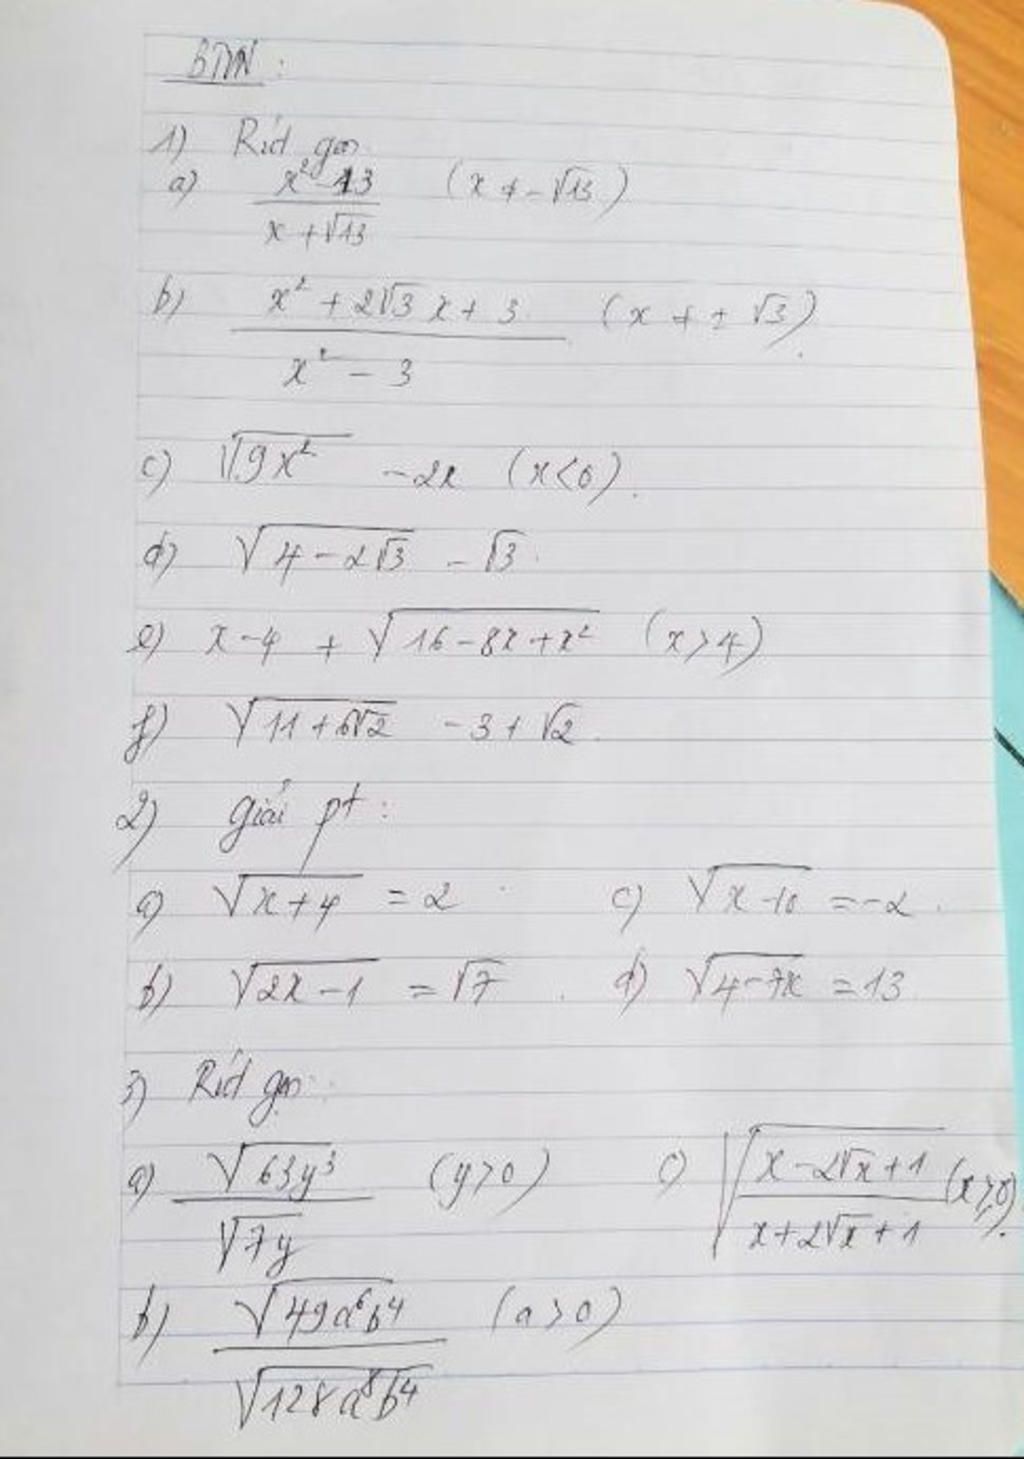 BTVN :
1) Rút gọn
a) \frac{x² - 13}{x + √13} (x ≠ -√13)
b) \frac{x² + 2√3 x + 3}{x² - 3} (x ≠ ± √3).
c) √{9x²} - 2x (x < 0).
d) √{4 - 2√3} - √3.
e) x - 4 + √{16 - 8x + x²} (x > 4)
f) √{11 + 6√2} - 3 + √2.
2) Giải pt :
a) √{x + 4} = 2 c) √{x - 10} = -2.
b) √{2x - 1} = √7. d) √{4 - 7x} = 13
3) Rút gọn :
a) \frac{√{63y³}}{√{7y}} (y > 0) c) √{\frac{x - 2√x + 1}{x + 2√x + 1}} (x ≥ 0).
b) \frac{√{49a⁶b⁴}}{√{128a⁸b⁴}} (a > 0)